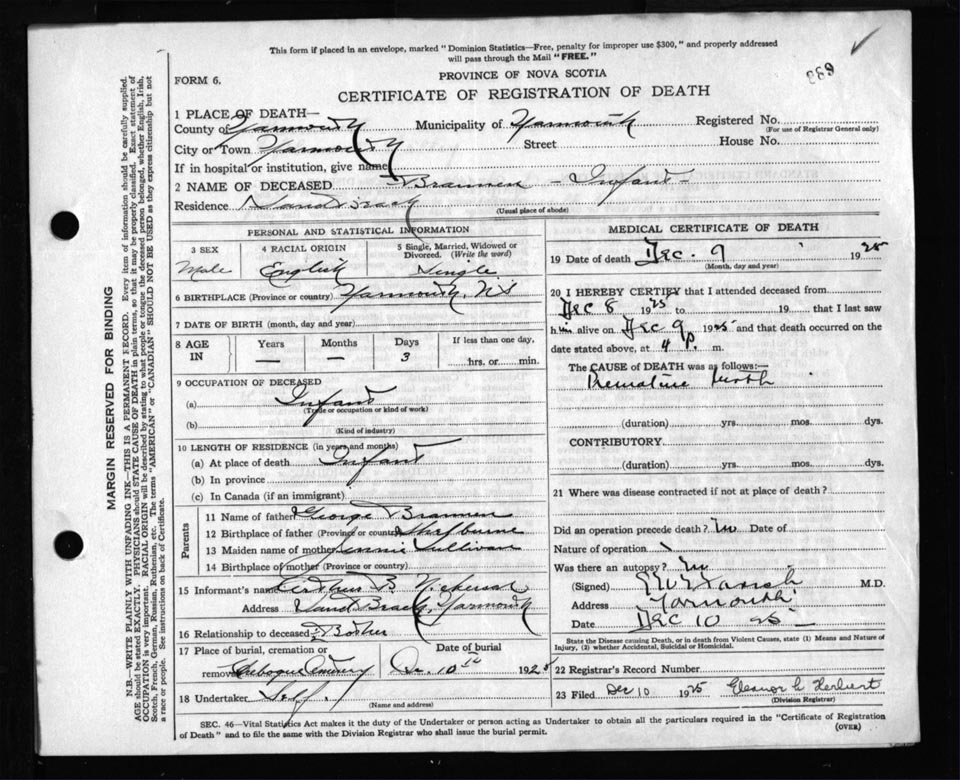 This form if placed in an envelope, marked "Dominion Statistics—Free, penalty for improper use $300," and properly addressed
will pass through the Mail "FREE."
FORM 6.
PROVINCE OF NOVA SCOTIA
CERTIFICATE OF REGISTRATION OF DEATH
1 PLACE OF DEATH—
County of Yarmouth Municipality of Yarmouth Registered No.
(For use of Registrar General only)
City or Town Yarmouth Street House No.
If in hospital or institution, give name
2 NAME OF DECEASED Brannen - Infant -
Residence Sand Beach
(Usual place of abode)
PERSONAL AND STATISTICAL INFORMATION
3 SEX 4 RACIAL ORIGIN 5 Single, Married, Widowed or
Divorced. (Write the word)
Male English Single
6 BIRTHPLACE (Province or country) Yarmouth, NS
7 DATE OF BIRTH (month, day and year)
8 AGE IN Years Months Days If less than one day,
— — 3 hrs. or min.
9 OCCUPATION OF DECEASED
(a) Infant
(Trade or occupation or kind of work)
(b)
(Kind of industry)
10 LENGTH OF RESIDENCE (in years and months)
(a) At place of death Infant
(b) In province
(c) In Canada (if an immigrant)
Parents
11 Name of father George Brannen
12 Birthplace of father (Province or country) Shelburne
13 Maiden name of mother Sullivan
14 Birthplace of mother
15 Informant's name Arthur B.
Address Sand Beach, Yarmouth
16 Relationship to deceased
17 Place of burial, cremation or Date of burial
removal Chebogue Cemetery Dec. 10th 1925
18 Undertaker Self.
(Name and address)
MEDICAL CERTIFICATE OF DEATH
19 Date of death Dec. 9 1925
(Month, day and year)
20 I HEREBY CERTIFY that I attended deceased from
Dec 8 1925 to 19 that I last saw
him alive on Dec 9 1925 and that death occurred on
date stated above, at 4 p. m.
The CAUSE of DEATH was as follows:—
Premature birth
(duration) yrs. mos. dys.
CONTRIBUTORY
(duration) yrs. mos. dys.
21 Where was disease contracted if not at place of death?
Did an operation precede death? No Date of
Nature of operation
Was there an autopsy? No
(Signed) M.D.
Address Yarmouth
Date Dec 10 25
State the Disease causing Death, or in death from Violent Causes, state (1) Means and Nature of
Injury, (2) whether Accidental, Suicidal or Homicidal.
22 Registrar's Record Number
23 Filed Dec 10 1925 Eleanor G Herbert
(Division Registrar)
SEC. 46—Vital Statistics Act makes it the duty of the Undertaker or person acting as Undertaker to obtain all the particulars required in the "Certificate of Registration
of Death" and to file the same with the Division Registrar who shall issue the burial permit.
(OVER)
MARGIN RESERVED FOR BINDING
N.B.—WRITE PLAINLY WITH UNFADING INK—THIS IS A PERMANENT RECORD. Every item of information should be carefully supplied.
AGE should be stated EXACTLY. PHYSICIANS should STATE CAUSE OF DEATH in plain terms, so that it may be properly classified. Exact statement of
OCCUPATION is very important. RACIAL ORIGIN will be described by stating to what people or tongue the deceased person belonged, whether English, Irish,
Scotch, French, German, Russian, Ruthenian, etc. The terms "AMERICAN" or "CANADIAN" SHOULD NOT BE USED as they express citizenship but not
a race or people. See instructions on back of Certificate.